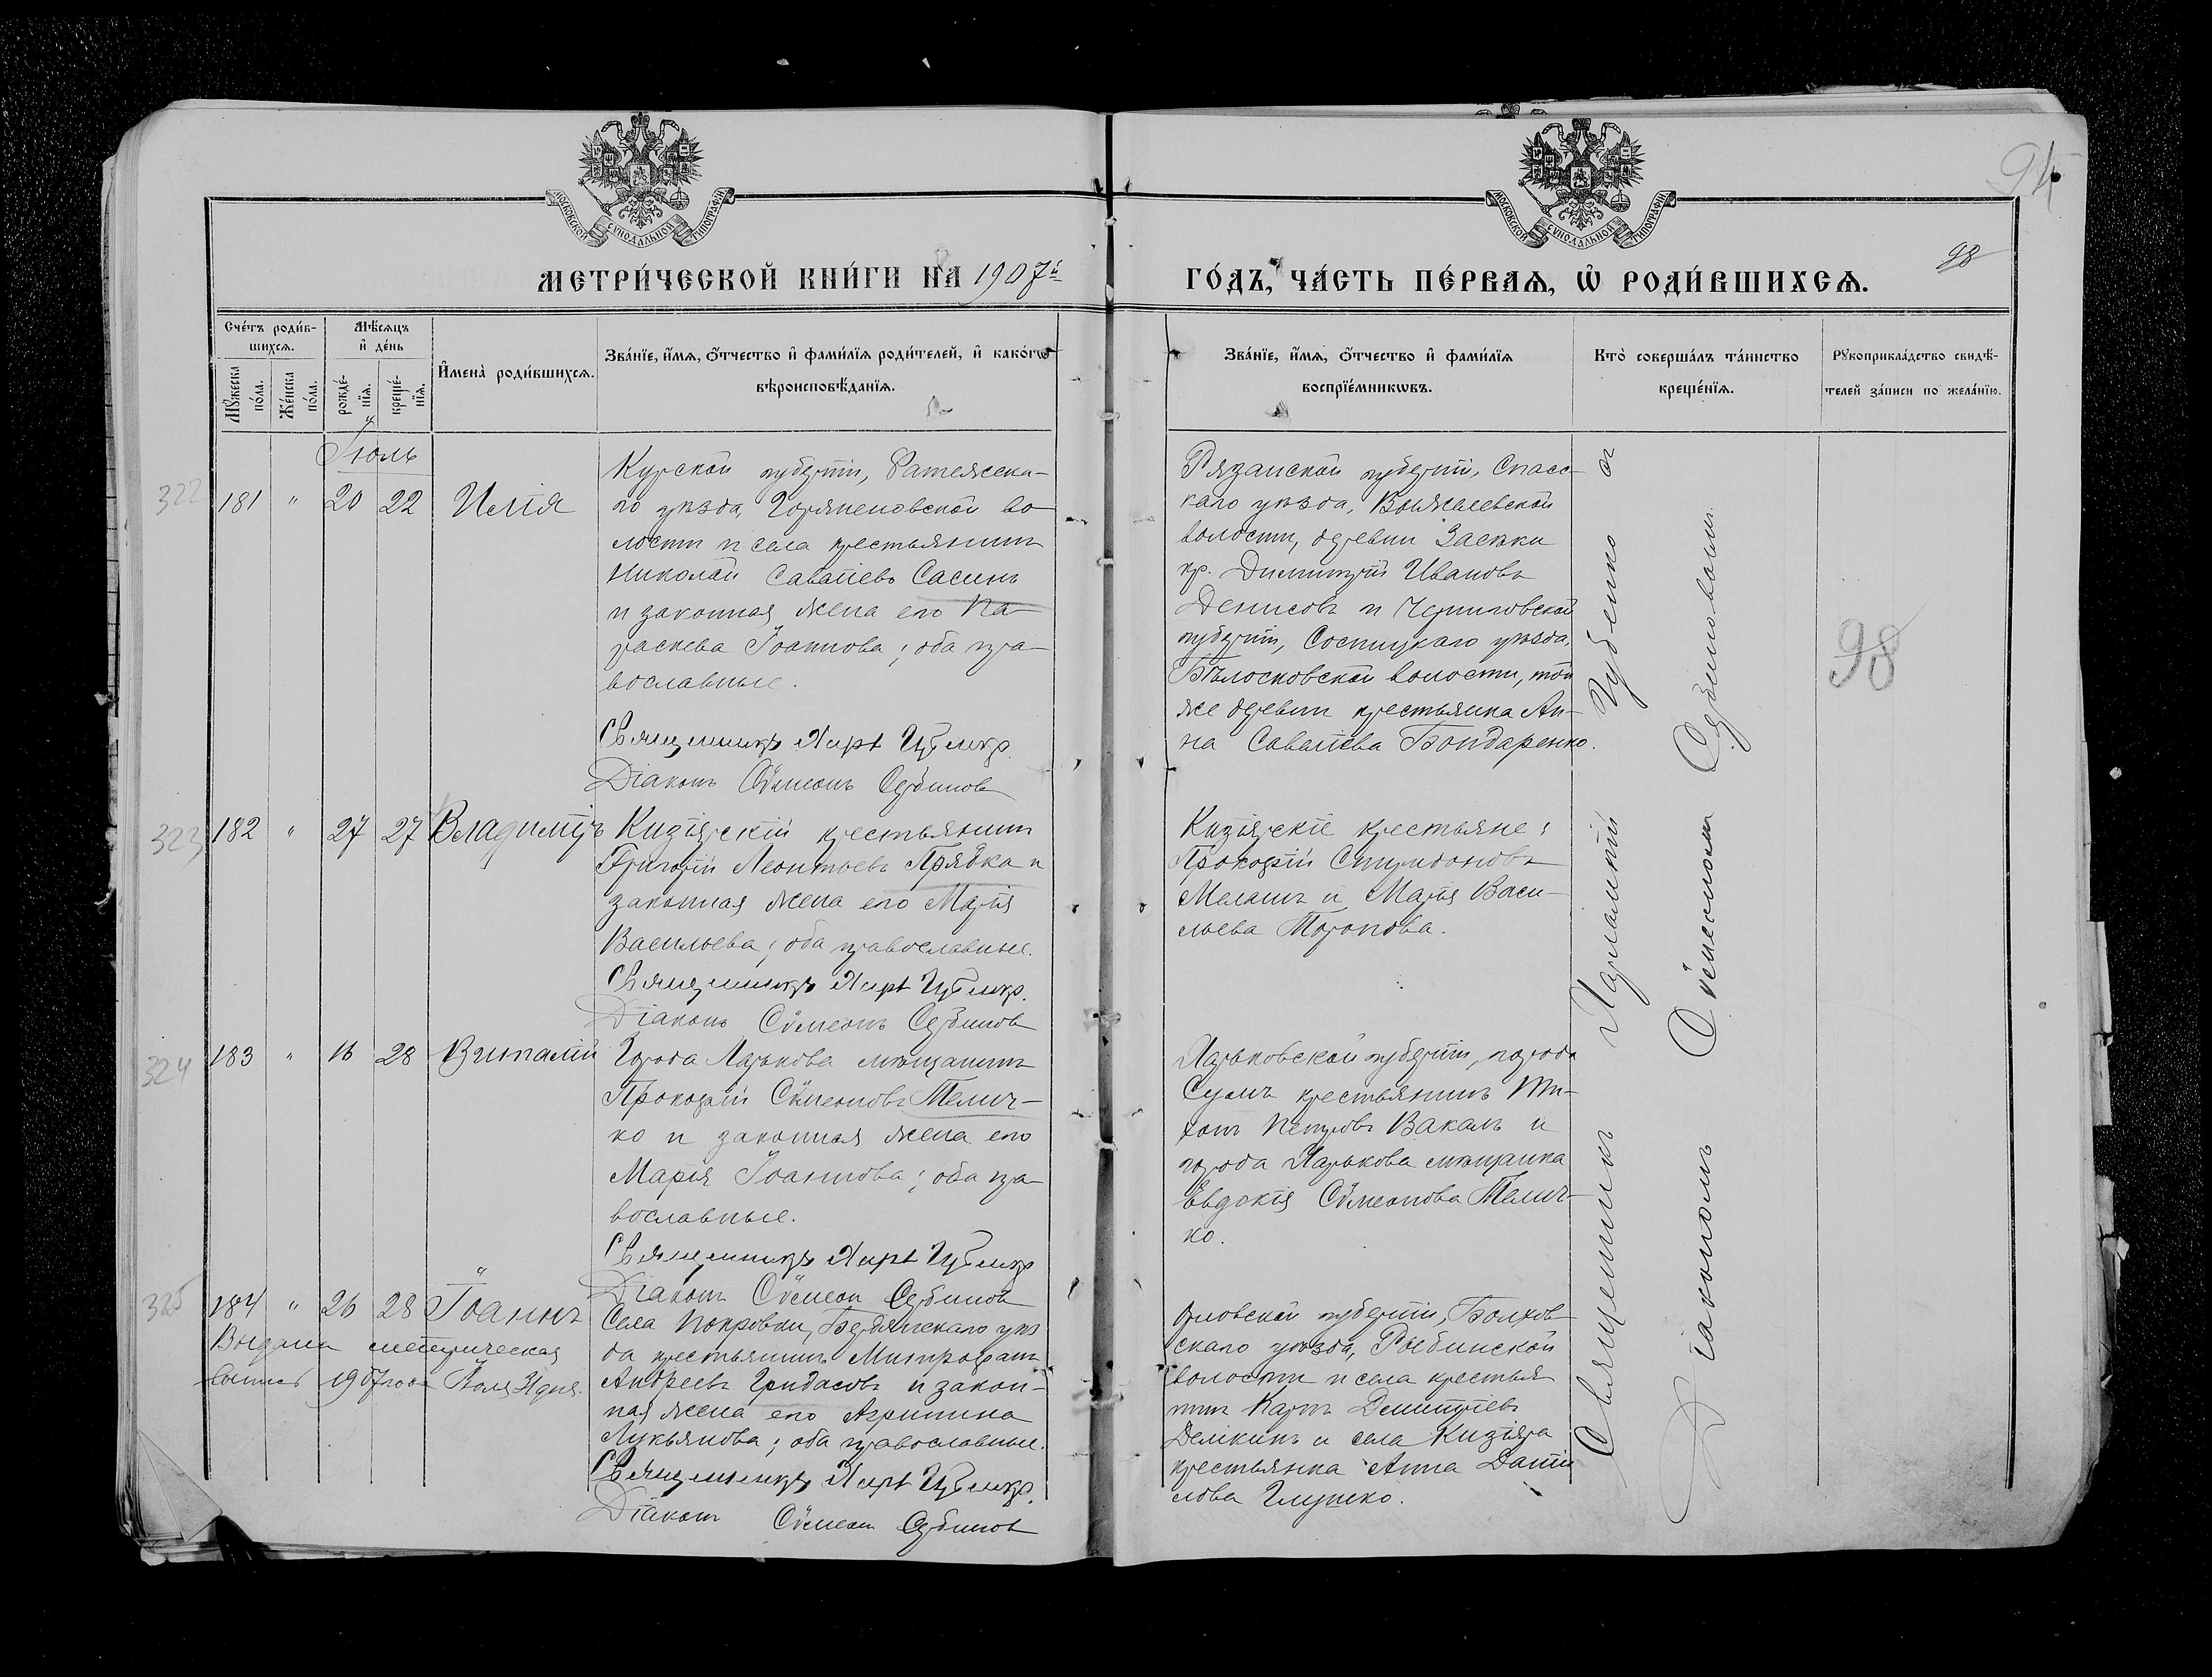 94
98
МОСКОВСКОЙ СУНОДАЛЬНОЙ ТИПОГРАФІИ
МОСКОВСКОЙ СУНОДАЛЬНОЙ ТИПОГРАФІИ
МЕТРИ́ЧЕСКОЙ КНИ́ГИ НА 1907й
ГО́ДЪ, ЧА́СТЬ ПЕ́РВАѦ, Ѽ РОДИ́ВШИХСѦ.
Сче́тъ роди́в-
шихсѧ.
Мꙋ́жеска по́ла.
Же́нска по́ла.
Мѣ́сѧцъ
и҆ де́нь
рожде́-
нїѧ.
креще́-
нїѧ.
И҆мена̀ роди́вшихсѧ.
Зва́нїе, и҆́мѧ, ѻ҆́тчество и҆ фами́лїѧ роди́телей, и҆ како́гѡ
вѣроисповѣ́данїѧ.
Зва́нїе, и҆́мѧ, ѻ҆́тчество и҆ фами́лїѧ
воспрїе́мникѡвъ.
Кто̀ соверша́лъ та́инство
креще́нїѧ.
Рꙋкоприкла́дство свидѣ́-
телей за́писи по жела́нїю.
Іюль
322
181 " 20 22 Илія
Курской губерніи, Ратежска-
го уѣзда, Горяненовской во-
лости и села крестьянинъ
Николай Саватіевъ Сасинъ
и законная жена его Па-
раскева Іоаннова; оба пра-
вославные.
Священникъ Харл Чубенко.
Діаконъ Сѵмеонъ Сербиновъ
Рязанской губерніи, Спасс-
каго уѣзда,
волости, деревни Засѣки
кр. Димитрій Ивановъ
Денисовъ и Черниговской
губерніи, Сосницкаго уѣзда,
волости, той
же деревни крестьянка Ан-
на Саватіева Бондаренко.
98
323
182 " 27 27 Владиміръ
Кизіярскій крестьянинъ
Григорій Леонтьевъ Прядка и
законная жена его Марія
Васильева; оба православные.
Священникъ Харл Чубенко.
Діаконъ Сѵмеонъ Сербиновъ
Кизіярскіе крестьяне:
Прокофій Спиридоновъ
и Марія Васи-
льева Торопова.
324
183 " 16 28 Виталій
Города Харькова мѣщанинъ
Прокофій Сѵмеоновъ Телич-
ко и законная жена его
Марія Іоаннова; оба пра-
вославные.
Священникъ Харл Чубенко
Діаконъ Сѵмеонъ Сербиновъ
Харьковской губерніи, города
Сумъ крестьянинъ Ти-
хонъ Петровъ Вакалъ и
города Харькова мѣщанка
Евдокія Сѵмеонова Телич-
ко.
325
184 " 26 28 Іоаннъ
Выдана метрическая
выпись 1907 года Іюля 31 дня.
Села Покровки, Бердянскаго уѣз
да крестьянинъ Митрофанъ
Андреевъ Гридасовъ и закон-
ная жена его Агрипина
Лукьянова; оба православные.
Священникъ Харл Чубенко.
Діаконъ Сѵмеонъ Сербиновъ
Орловской губерніи, Болхов-
скаго уѣзда, Рыбинской
волости и села крестья
нинъ Карпъ Димитріевъ
Деликинъ и села Кизіяра
крестьянка Анна Даніи
лова
Священникъ Харлампій Чубенко съ
Діакономъ Сѵмеономъ Сербиновымъ.